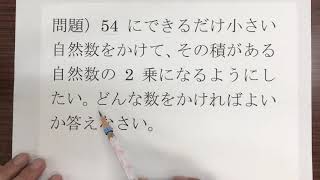 問題）54 にできるだけ小さい
自然数をかけて、その積がある
自然数の 2 乗になるようにし
たい。どんな数をかければよい
か答えなさい。